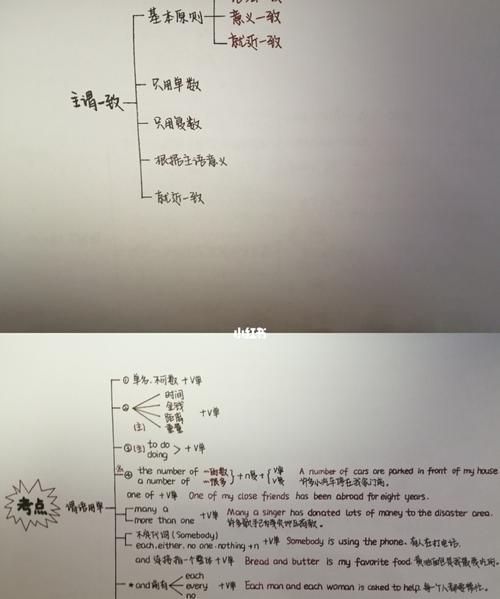 基本原则
意义一致
就近一致
主谓一致
只用单数
只用复数
根据主语意义
就近一致
小红书
① 单名.不可数 +V单
② 时间
金钱
距离
(主) 重量
+V单
③(主) to do
doing > +V单
④ the number of 一时数
a number of 一很多
}+n复+{ V单
V复
A number of cars are parked in front of my house
one of +V单 One of my close friends has been abroad for eight years.
考点
谓语用单
many a
more than one
+V单 Many a singer has donated lots of money to the disaster area.
不定代词 (Somebody)
each.either.no one.nothing+n +V单 Somebody is using the phone. 有人在打电话.
and 连接指一个整体 +V单 Bread and butter is my favorite food.
*and前有 each
every
no
+V单 Each man and each woman is asked to help.